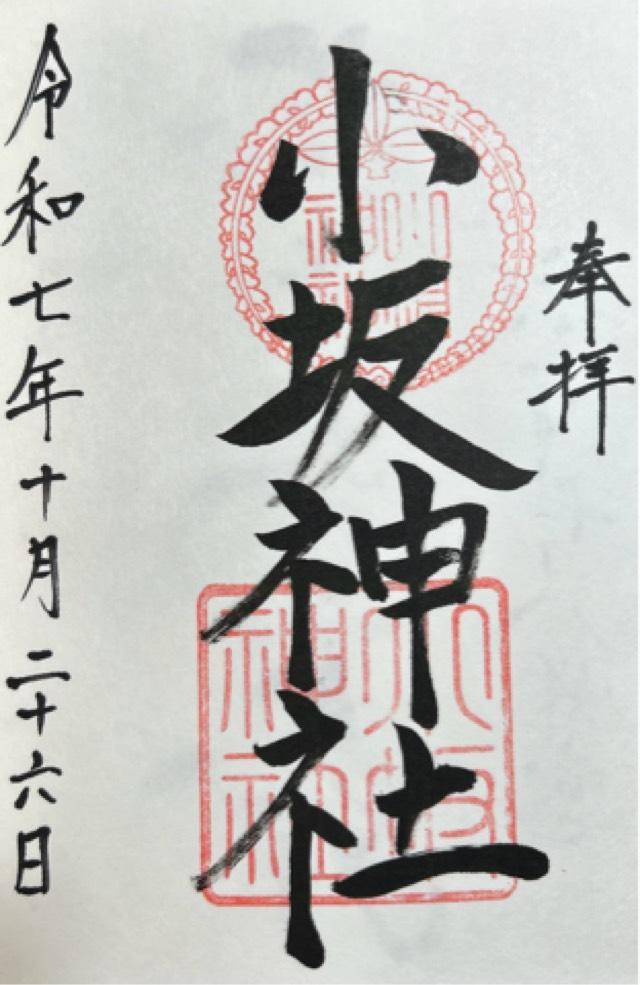 奉拝
小坂神社
令和七年十月二十六日
小坂神社